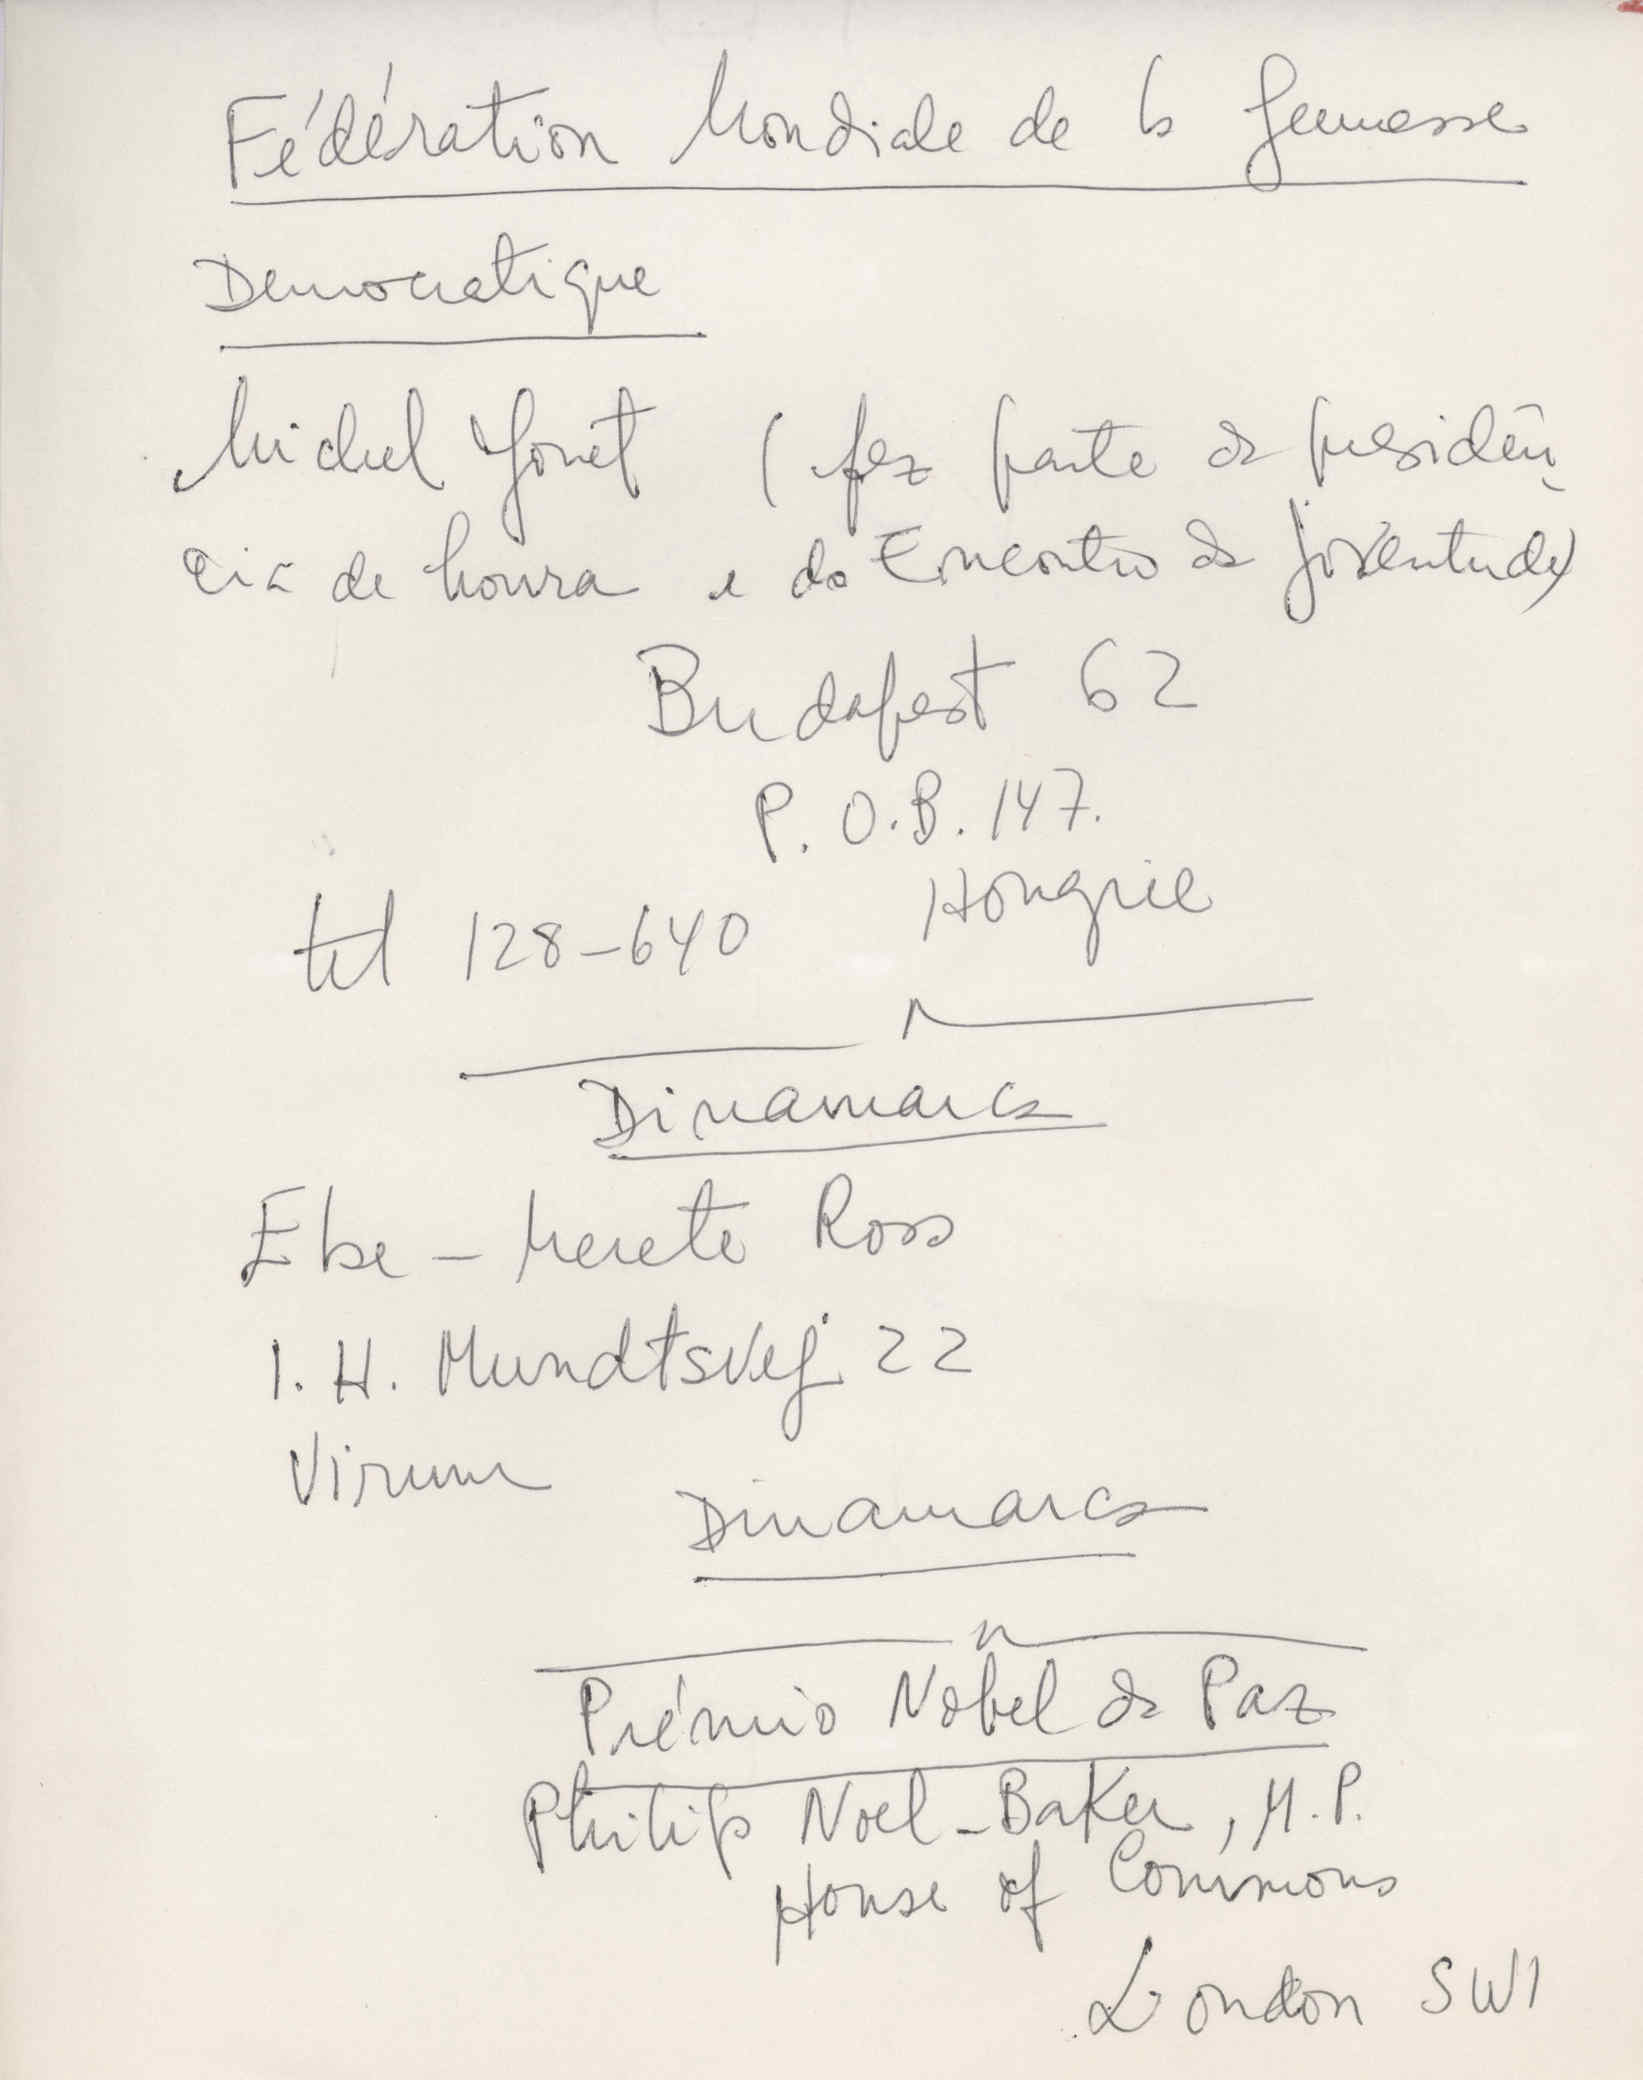 Fédération Mondiale de la Jeunesse
Democratique
Michel Jouet ( fez parte da presidên
cia de honra e do Encontro da juventude)
Budapest 62
P.O.B. 147.
Hongrie
tel 128-640
Dinamarca
Else - Merete Ross
I. H. Mundtsvej 22
Virum
Dinamarca
Prémio Nobel da Paz
Philip Noel-Baker, M.P.
House of Commons
London SW1